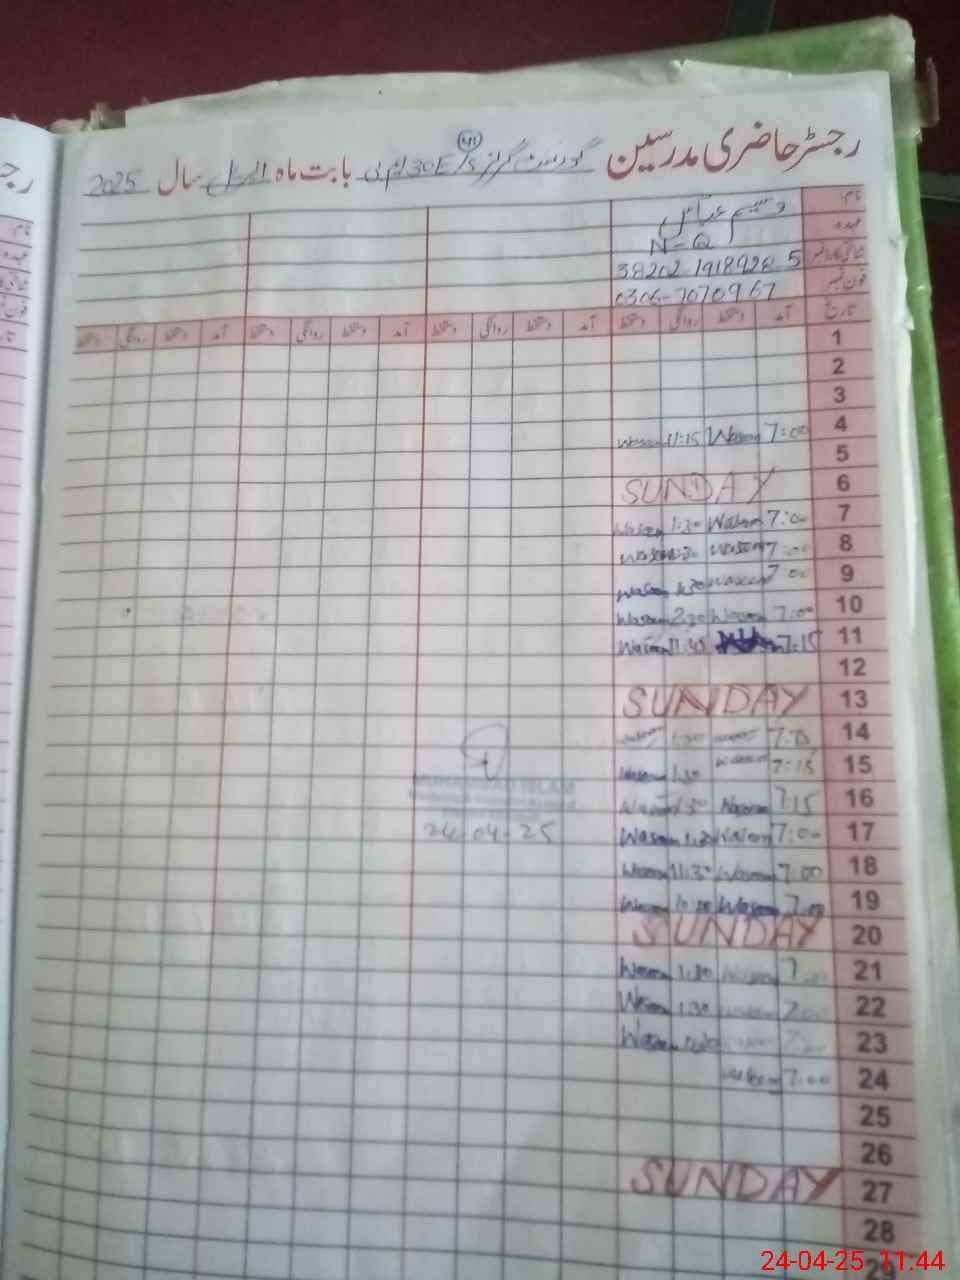 رجسٹر حاضری مدرسین گورنمنٹ گرلز E/S 30 ایم بی بابت ماہ اپریل سال 2025
نام وسیم عباس
عہدہ N-Q
شناختی کارڈ نمبر 38202-1918928-5
فون نمبر 0306-7070967
تاریخ آمد دستخط روانگی دستخط آمد دستخط روانگی دستخط آمد دستخط روانگی دستخط آمد دستخط روانگی دستخط
1
2
3
4 7:00 Waseem 11:15 Waseem
5
6 SUNDAY
7 7:00 Waseem 1:30 Waseem
8 7:00 Waseem Waseem
9 7:00 Waseem 1:30 Waseem
10 7:00 Waseem 2:30 Waseem
11 7:15 11:45 Waseem
12
13 SUNDAY
14 1:30
15 7:15 Waseem 1:30 Waseem
16 7:15 Waseem 1:30 Waseem
17 7:00 Waseem 1:30 Waseem
18 7:00 Waseem 11:30 Waseem
19 7:00 Waseem 10:00 Waseem
20 SUNDAY
21 7:00 Waseem 1:30 Waseem
22 7:00 Waseem 1:30 Waseem
23 Waseem
24 7:00 Waseem
25
26
27 SUNDAY
28
29
MUHAMMAD ISLAM
24-04-25
24-04-25 11:44